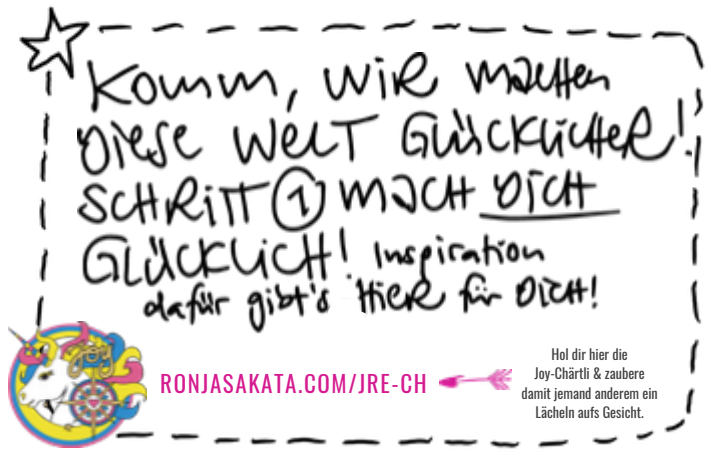 Komm, wir machen
diese Welt glücklicher!
Schritt 1 mach dich
glücklich! Inspiration
dafür gibt's hier für dich!
Joy
RONJASAKATA.COM/JRE-CH
Hol dir hier die
Joy-Chärtli & zaubere
damit jemand anderem ein
Lächeln aufs Gesicht.